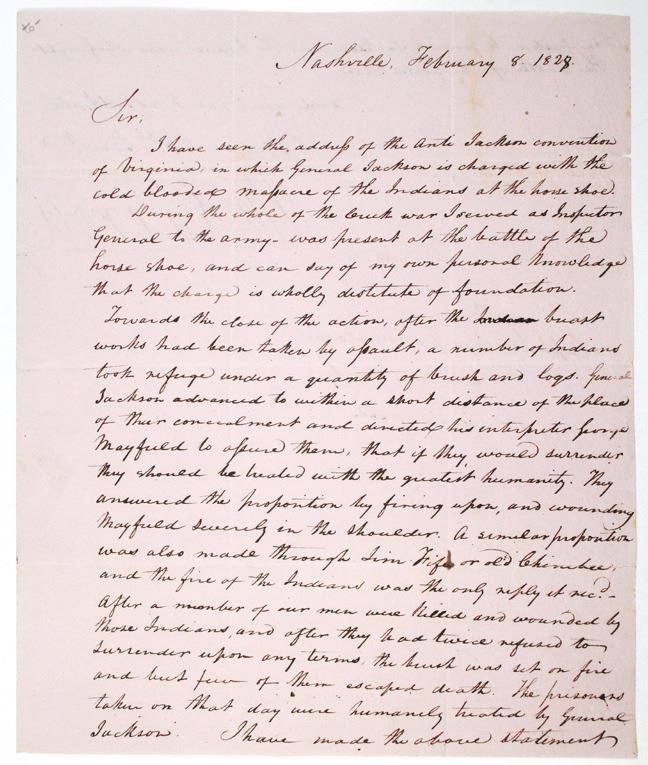 Nashville, February 8. 1828.
Sir,
I have seen the address of the Anti Jackson convention
of Virginia, in which General Jackson is charged with the
cold blooded massacre of the Indians at the horse shoe.
During the whole of the Creek war I served as Inspector
General to the army - was present at the battle of the
horse shoe, and can say of my own personal knowledge
that the charge is wholly destitute of foundation.
Towards the close of the action, after the Indian breast
works had been taken by assault, a number of Indians
took refuge under a quantity of brush and logs. General
Jackson advanced to within a short distance of the place
of their concealment and directed his interpreter George
Mayfield to assure them, that if they would surrender
they should be treated with the greatest humanity. They
answered the proposition by firing upon, and wounding
Mayfield severely in the shoulder. A similar proposition
was also made through Jim Fife or old Chinibee,
and the fire of the Indians was the only reply it recd. -
After a number of our men were killed and wounded by
those Indians, and after they had twice refused to
surrender upon any terms, the brush was set on fire
and but few of them escaped death. The prisoners
taken on that day were humanely treated by General
Jackson. I have made the above statement